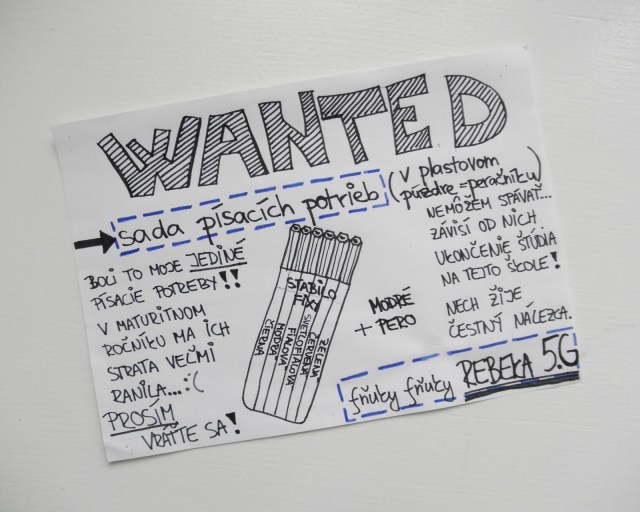 WANTED
sada písacích potrieb
(v plastovom
púzdre = peračníku)
BOLI TO MOJE JEDINÉ
PÍSACIE POTREBY!!
V MATURITNOM
ROČNÍKU MA ICH
STRATA VEĽMI
RANILA...:(
PROSÍM
VRÁŤTE SA!
STABILO
FIXY
ČIERNA
MODRÁ
FIALOVÁ
SVETLOFIALOVÁ
ČERVENÁ
ZELENÁ
+ MODRÉ
PERO
NEMÔŽEM SPÁVAŤ...
ZÁVISÍ OD NICH
UKONČENIE ŠTÚDIA
NA TEJTO ŠKOLE!
NECH ŽIJE
ČESTNÝ NÁLEZCA.
fňuky fňuky REBEKA 5.G